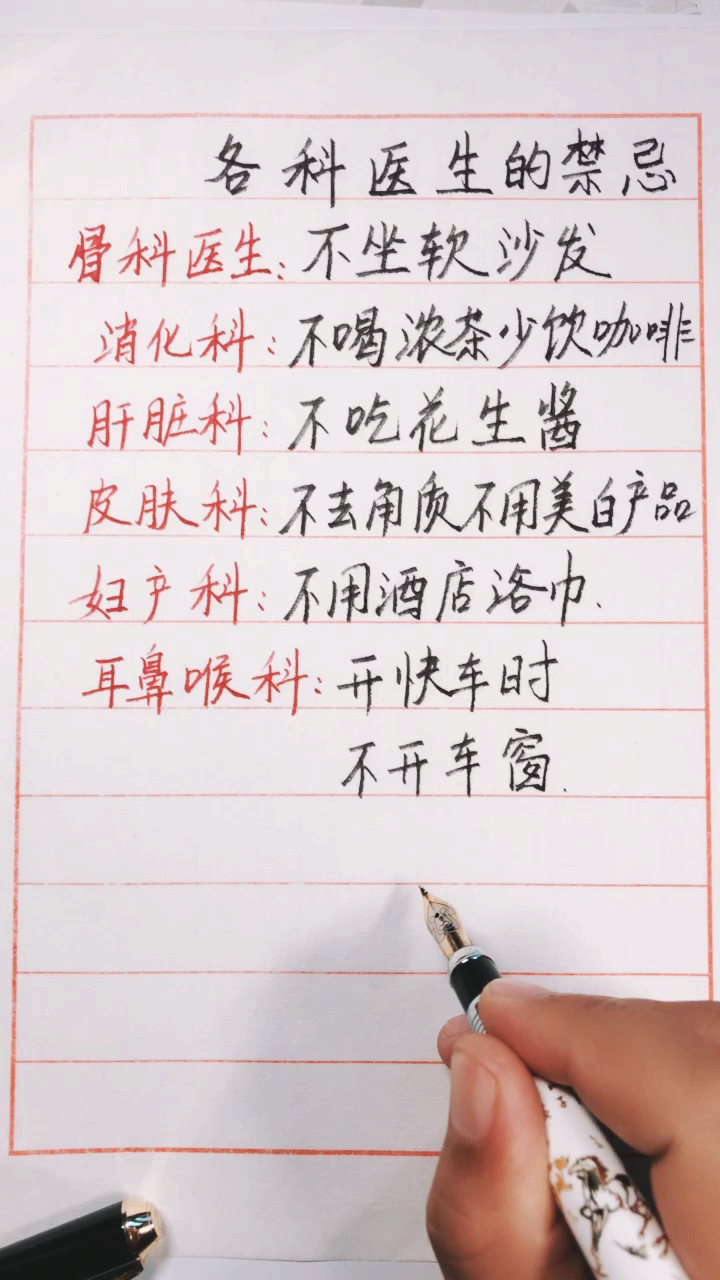 各科医生的禁忌
骨科医生:不坐软沙发
消化科:不喝浓茶少饮咖啡
肝脏科:不吃花生酱
皮肤科:不去角质不用美白产品
妇产科:不用酒店浴巾.
耳鼻喉科:开快车时
不开车窗.